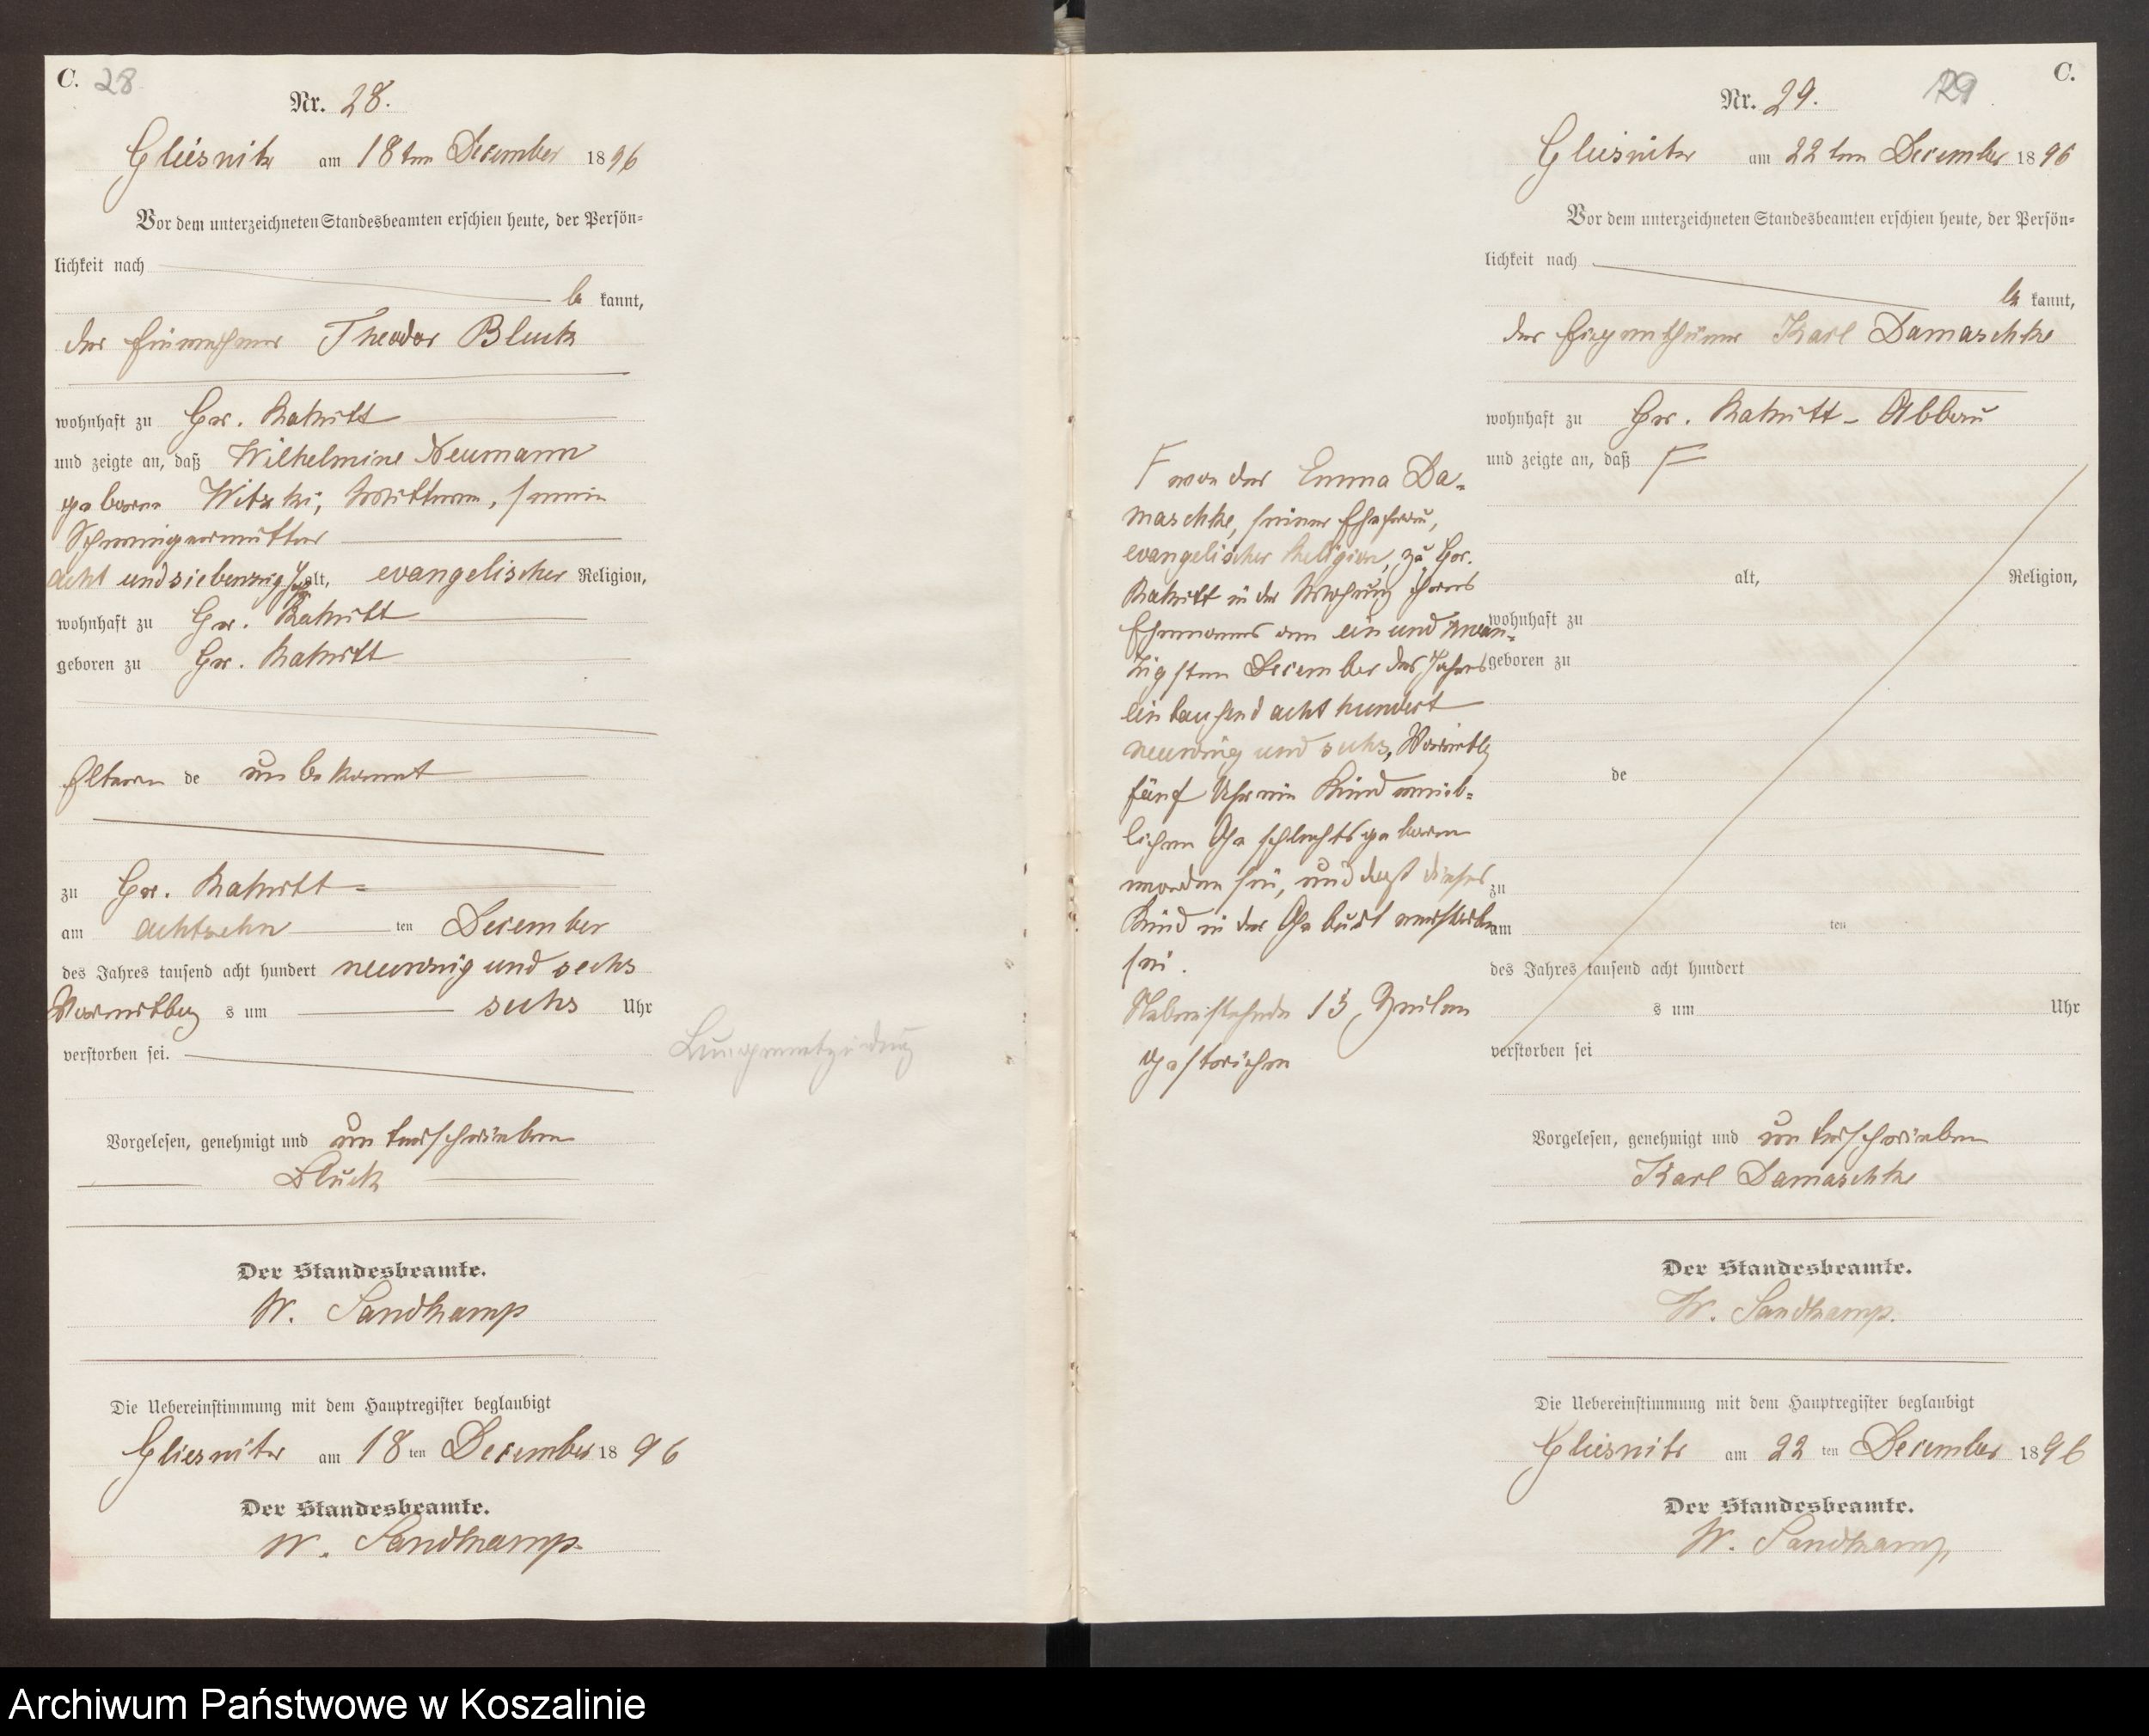 C. 28
Nr. 28.
Gliesnitz am 18ten December 1896
Vor dem unterzeichneten Standesbeamten erschien heute, der Persön-
lichkeit nach
be kannt,
der Einwohner Theodor Bluck
wohnhaft zu Gr. Rakitt
und zeigte an, daß Wilhelmine Neumann
geborene Witzki, Wittwe, seine
Schwiegermutter
acht und siebenzig J. alt, evangelischer Religion,
wohnhaft zu Gr. Rakitt
geboren zu Gr. Rakitt
Eltern de unbekannt
zu Gr. Rakitt
am achtzehn ten December
des Jahres tausend acht hundert neunzig und sechs
Vormittag s um sechs Uhr
verstorben sei.
Lungenentzündung
Vorgelesen, genehmigt und unterschrieben
Bluck
Der Standesbeamte.
W. Sandkamp
Die Uebereinstimmung mit dem Hauptregister beglaubigt
Gliesnitz am 18 ten December 1896
Der Standesbeamte.
W. Sandkamp.
C.
29
Nr. 29.
Gliesnitz am 22ten December 1896
Vor dem unterzeichneten Standesbeamten erschien heute, der Persön-
lichkeit nach
be kannt,
der Eigenthümer Karl Damaschke
wohnhaft zu Gr. Rakitt-Abbau
und zeigte an, daß F
F von der Emma Da-
maschke, seiner Ehefrau,
evangelischer Religion, zu Gr.
Rakitt in der Wohnung ihres
Ehemannes am ein und zwan-
zigsten December des Jahres
ein tausend acht hundert
neunzig und sechs, Vormittag
fünf Uhr ein Kind weib-
lichen Geschlechts geboren
worden sei, und daß dieses
Kind in der Geburt verstorben
sei.
Nebenstehende 13 Zeilen
gestrichen
alt, Religion,
wohnhaft zu
geboren zu
de
zu
am ten
des Jahres tausend acht hundert
s um Uhr
verstorben sei
Vorgelesen, genehmigt und unterschrieben
Karl Damaschke
Der Standesbeamte.
W. Sandkamp.
Die Uebereinstimmung mit dem Hauptregister beglaubigt
Gliesnitz am 22 ten December 1896
Der Standesbeamte.
W. Sandkamp
Archiwum Państwowe w Koszalinie